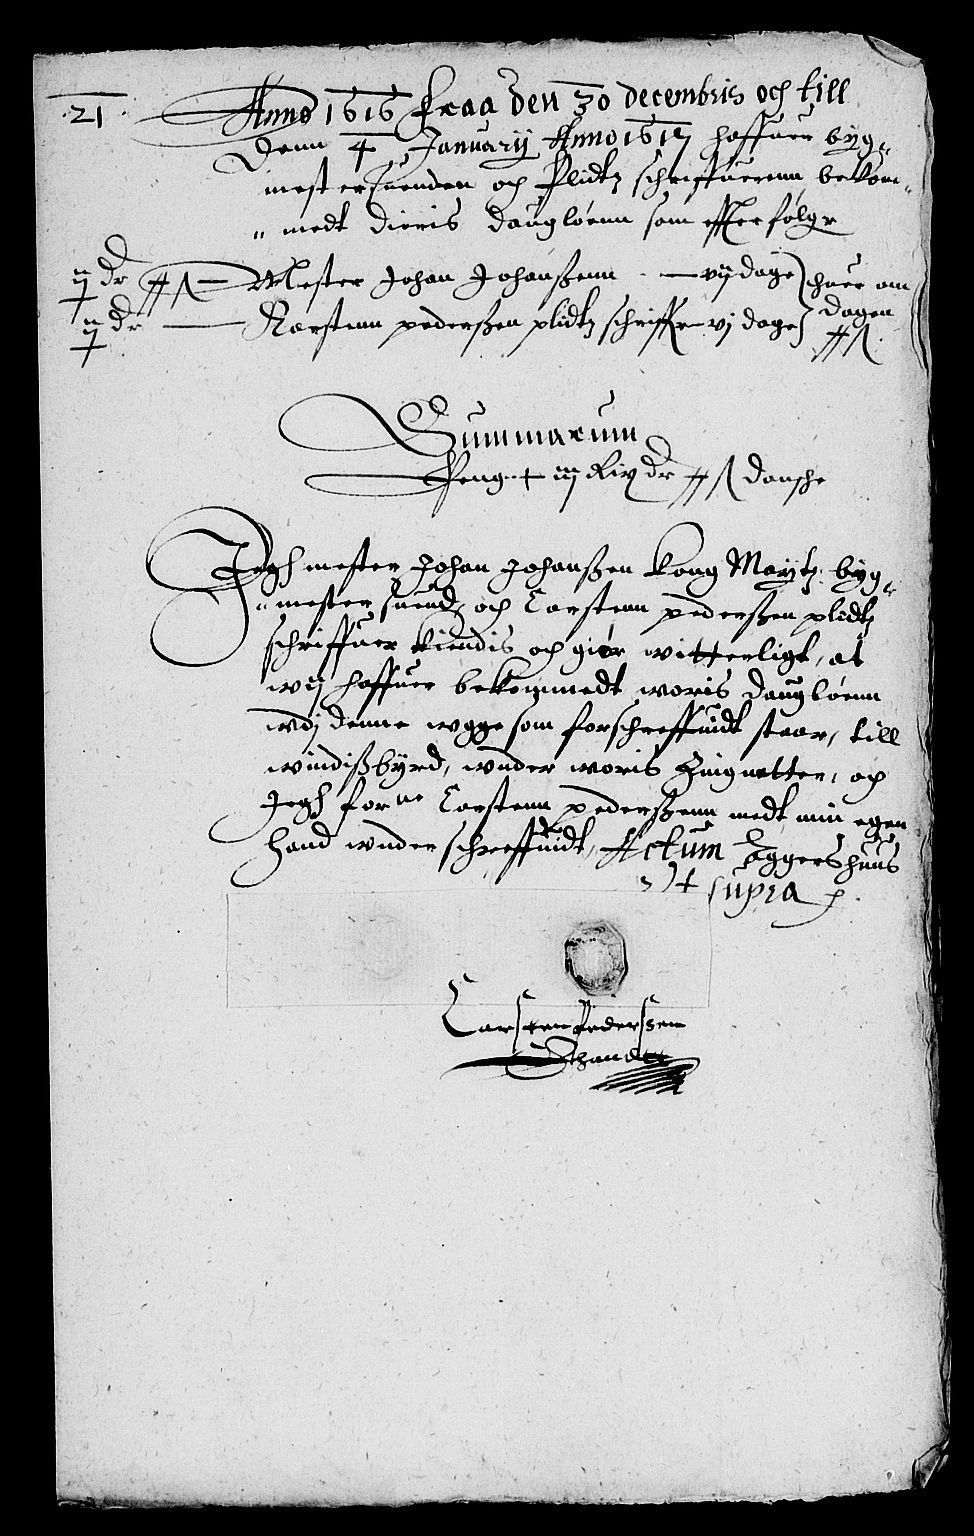 21.
Anno 1616 fraa den 30 decembris och till
Denn 4 January Anno 1617 haffuer byg„
mester suenden och Plidtz schriffuerenn bekom„
„medt dieris daugløenn som effterfølger
ij dr ½ Mester Johan Johanßenn — vij dage huer om
ij dr Karstenn pederßen plidtz schriffr — vj dage dagen
Summarum
Peng iiij Rix dr danshe
Jegh mester Johan Johanßen Kong Maytz byg„
„mester suend, och Carstenn pederßen plidtz
schriffuer kiendis och giør witterligt, at
wij haffuer bekommedt woris daugløenn
wdj denne wgge som forschreffuidt staar, till
windißbyrd, wnder woris Zignetter, och
Jegh forne Carstenn pederßenn medt min egen
hand wnder schreffuidt, Actum Aggershuus
Ut supra
Carsten Pederssen
Ehandt